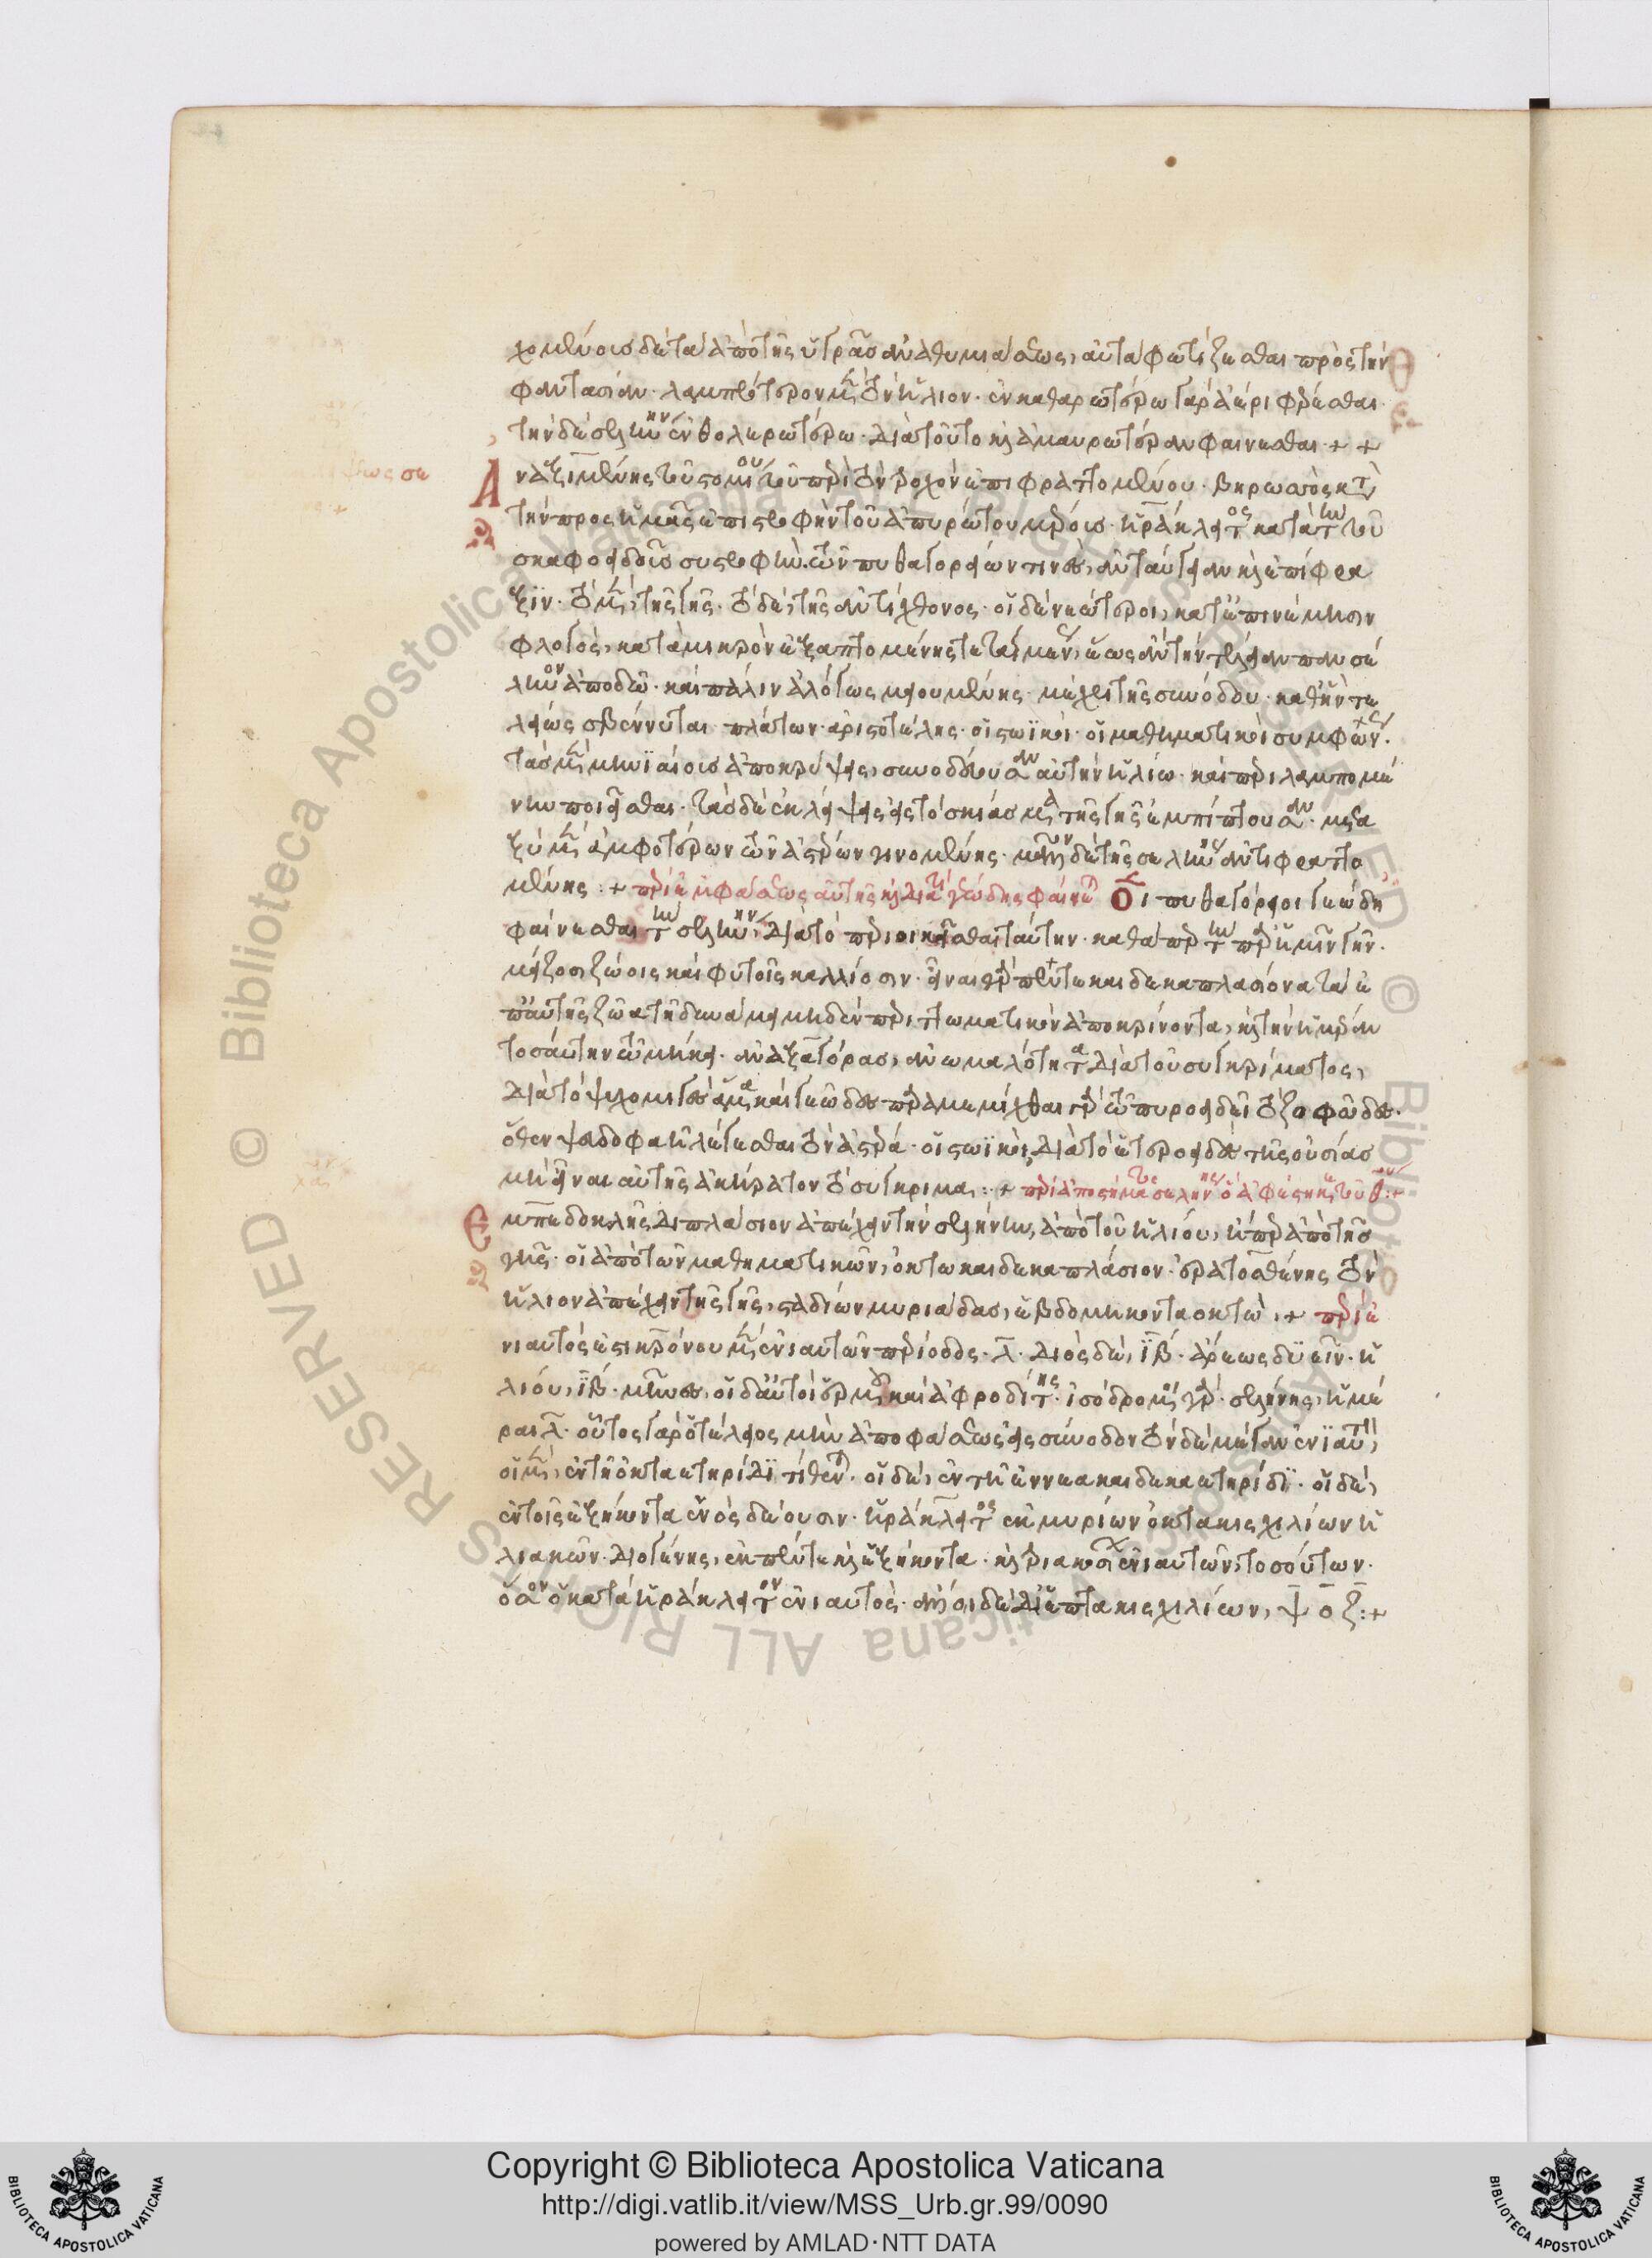 χομένοις δὲ τὰ ἀπὸ τῆς ὑγρᾶς ἀναθυμιάσεως, αὐτὰ φωτίζεσθαι πρὸς τὴν
φαντασίαν· λαμπρότερον μὲν τὸν ἥλιον· ἐν καθαρωτέρω γὰρ ἀέρι φέρεσθαι·
τὴν δὲ σελήνην ἐν θολερωτέρω· διὰ τοῦτο καὶ ἀμαυρωτέραν φαίνεσθαι ·+ +
Ἀναξιμένης τοῦ στομίου τοῦ περὶ τὸν τροχὸν ἐπιφραττομένου· βηρωσσὸς κατὰ
τὴν πρὸς ἡμᾶς ἐπιστροφὴν τοῦ ἀπυρώτου μέρους· ἡράκλειτος κατὰ τὴν τοῦ
σκαφοειδοῦς συστροφήν· τῶν πυθαγορείων τινὲς, ἀνταύγειαν καὶ ἐπίφρα
ξιν· τὸ μὲν, τῆς γῆς· τὸ δὲ, τῆς ἀντίχθονος· οἱ δὲ νεώτεροι, κατ' ἐπινέμησιν
φλογὸς, κατὰ μικρὸν ἐξαπτομένης τεταγμένως, ἕως ἂν τὴν τελείαν πανσέ
ληνον ἀποδῶ· καὶ πάλιν ἀλόγως μειουμένης· μέχρι τῆς συνόδου· καθ' ἣν τε
λείως σβέννυται· πλάτων· ἀριστοτέλης· οἱ στωϊκοὶ· οἱ μαθηματικοὶ συμφώνως·
τὰς μὲν μηνϊαίους ἀποκρύψεις, συνοδεύουσαν αὐτὴν ἡλίω· καὶ περιλαμπομέ
νην ποιεῖσθαι· τὰς δὲ ἐκλείψεις εἰς τὸ σκίασμα τῆς γῆς ἐμπίπτουσαν· μετα
ξὺ μὲν ἀμφοτέρων τῶν ἀστέρων γινομένης· μᾶλλον δὲ τῆς σελήνης ἀντιφραττο
μένης :+ περὶ ἐμφάσεως αὐτῆς καὶ διατί γεώδης φαίνεται Οἱ πυθαγόρειοι γεώδη
φαίνεσθαι τὴν σελήνην, διὰ τὸ περιοικεῖσθαι ταύτην· καθάπερ τὴν παρ' ἡμῖν γῆν·
μείζοσι ζώοις καὶ φυτοῖς καλλίοσιν· εἶναι γὰρ πεντεκαιδεκαπλασίονα τὰ ἐ
π' αὐτῆς ζῶα τῆ δυνάμει μηδὲν περιττωματικὸν ἀποκρίνοντα, καὶ τὴν ἡμέραν
τοσαύτην τῶ μήκει· ἀναξαγόρας, ἀνωμαλότητα διὰ τοῦ συγκρίματος,
διὰ τὸ ψυχρομιγὲς ἅμα καὶ γεῶδες· παραμεμίχθαι γὰρ τῶ πυροειδεῖ τὸ ζοφῶδες·
ὅθεν ψευδοφαῆ λέγεσθαι τὸν ἀστέρα· οἱ στωϊκοὶ, διὰ τὸ ἑτεροειδὲς τῆς οὐσίας
μὴ εἶναι αὐτῆς ἀκήρατον τὸ σύγκριμα :+ περὶ ἀποστήματος σελήνης
Ἐμπεδοκλῆς διπλάσιον ἀπέχειν τὴν σελήνην, ἀπὸ τοῦ ἡλίου, ἤπερ ἀπὸ τῆς
γῆς· οἱ ἀπὸ τῶν μαθηματικῶν, ὀκτωκαιδεκαπλάσιον· ἐρατοσθένης τὸν
ἥλιον ἀπέχειν τῆς γῆς, σταδίων μυριάδας, ἑβδομήκοντα ὀκτὼ :+ περὶ ἐ
νιαυτός ἐστι κρόνου μὲν ἐνιαυτῶν περίοδος· λ· διὸς δὲ, ϊβ· ἄρεως δυεῖν· ἡ
λίου, ϊβ· μῆνες, οἱ δ' αὐτοὶ ἑρμοῦ καὶ ἀφροδίτης· ἰσόδρομοι γάρ· σελήνης, ἡμέ
ραι λ· οὗτος γὰρ ὁ τέλειος μὴν ἀπὸ φάσεως εἰς σύνοδον τὸν δὲ μέγαν ἐνϊαυτὸν,
οἱ μὲν, ἐν τῆ ὀκταετηρίδϊ τίθενται· οἱ δὲ, ἐν τῆ ἐννεακαιδεκαετηρίδϊ· οἱ δὲ,
ἐν τοῖς ἑξήκοντα ἑνὸς δέουσιν· ἡράκλειτος ἐκ μυρίων ὀκτακισχιλίων ἡ
λιακῶν· διογένης, ἐκ πέντε καὶ ἑξήκοντα· καὶ τριακοσίων ἐνιαυτῶν, τοσούτων·
ὅσον ὁ κατὰ ἡράκλειτον ἐνιαυτός· ἄλλοι δὲ δι' ἑπτακισχιλίων, ψοζ :+
Copyright © Biblioteca Apostolica Vaticana
http://digi.vatlib.it/view/MSS_Urb.gr.99/0090
powered by AMLAD·NTT DATA